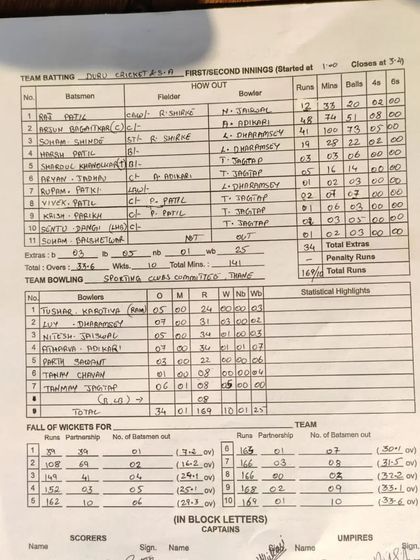 TEAM BATTING DURU CRICKET C.S.A FIRST/SECOND INNINGS (Started at 1:00 Closes at 3:41
No. Batsmen HOW OUT Fielder Bowler Runs Mins Balls 4s 6s
1 RAJ PATIL C&W/- R. SHIRKE N. JAISWAL 12 33 20 02 00
2 ARJUN BAGAITKAR(C) C/- A. ADIKARI 48 74 51 08 00
3 SOHAM SHINDE ST/- R. SHIRKE L. DHARAMSEY 41 100 73 05 00
4 HARSH PATIL B/- L. DHARAMSEY 19 28 22 02 00
5 SHARDUL B/- T. JAGTAP 03 03 06 00 00
6 ARYAN JADHAV C/- A. ADIKARI T. JAGTAP 05 16 14 00 00
7 RUPAM PATKI LBW/- L. DHARAMSEY 01 02 03 00 00
8 VIVEK PATIL C/- P. PATIL T. JAGTAP 02 07 07 00 00
9 KRISH PARIKH C/- P. PATIL T. JAGTAP 01 06 03 00 00
10 DANGI (LHB) C/- T. JAGTAP 03 05 00 00
11 SOHAM NOT OUT 01 02 03 00 00
Extras : b 03 lb 05 nb 01 wb 25 34 Total Extras
Total : Overs : 33.6 Wkts. 10 Total Mins. : 141 - Penalty Runs
169/10 Total Runs
TEAM BOWLING SPORTING CLUB COMMITTEE, THANE
No. Bowlers O M R W Nb Wb Statistical Highlights
1 TUSHAR KAROTIYA (RAM) 05 00 24 00 00 03
2 LUV DHARAMSEY 07 00 31 03 00 02
3 NITESH JAISWAL 05 00 34 01 00 03
4 ATHARVA ADIKARI 07 00 34 01 01 07
5 PARTH SAWANT 03 00 22 00 00 06
6 TANAY CHAVAN 01 00 08 00 00 04
7 TANMAY JAGTAP 06 01 08 05 00 00
8 (B LB) → 08
9 TOTAL 34 01 169 10 01 25
FALL OF WICKETS FOR TEAM
Runs Partnership No. of Batsmen out Runs Partnership No. of Batsmen out
1 39 39 01 (7.2 ov) 6 163 01 07 (30.1 ov)
2 108 69 02 (16.2 ov) 7 166 03 08 (31.5 ov)
3 149 41 04 (24.1 ov) 8 166 00 03 (32.2 ov)
4 152 03 05 (25.1 ov) 9 168 02 09 (33.1 ov)
5 162 10 06 (29.3 ov) 10 169 01 10 (33.6 ov)
(IN BLOCK LETTERS)
SCORERS CAPTAINS UMPIRES
Name Sign. Name Sign. Name Sign.